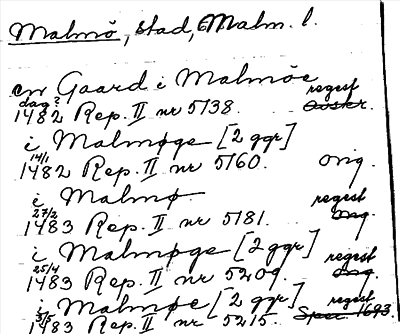 Malmö, stad, Malm. l.
en Gaard i Malmöe regest
dag?
1482 Rep. II nr 5138.
i Malmøge [2 ggr]
14/1
1482 Rep. II nr 5160. orig.
i Malmø. regest
27/2
1483 Rep. II nr 5181. orig.
i Malmøge [2 ggr] regest
25/4
1483 Rep. II nr 5209. orig.
i Malmøe [2 ggr] regest
3/5
1483 Rep. II nr 5215. 1693.